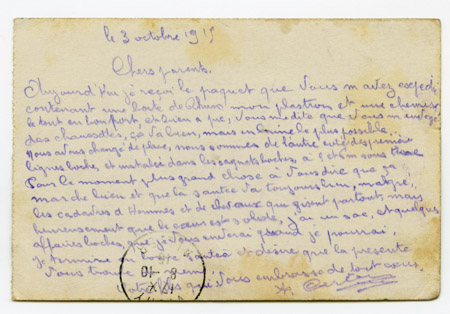 le 3 octobre 1915
Chers parents.
Aujourd'hui je reçoi le paquet que vous m'avez expedié
contenant une boite de Rhum mon plastron et une chemise
le tout en bon port, et bien a pic, vous me dite que vous m'envoyé
des chaussettes, ça va bien, mais en laine le plus possible.
Nous avons changé de place, nous sommes de l'autre coté des première
lignes boches, et installé dans les cagnats boches, a 5 et 6 m sous terre
Pour le moment plus grand chose a vous dire que ça
marche bien et que la santée va toujours bien, malgré
les cadavres d'Hommes et de chevaux qui gisent partout mais
heureusement que le cœur est solide, j'ai un sac, et quelques
affaires boches, que je vous enverai quand je pourrai,
je termine en bonne santée et désire que la presente
vous trouve de meme
Votre fils que vous embrasse de tout cœur.